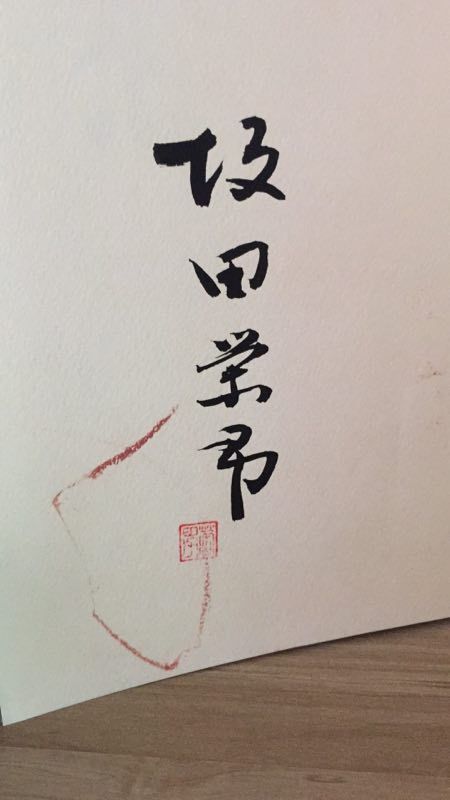 坂田栄男